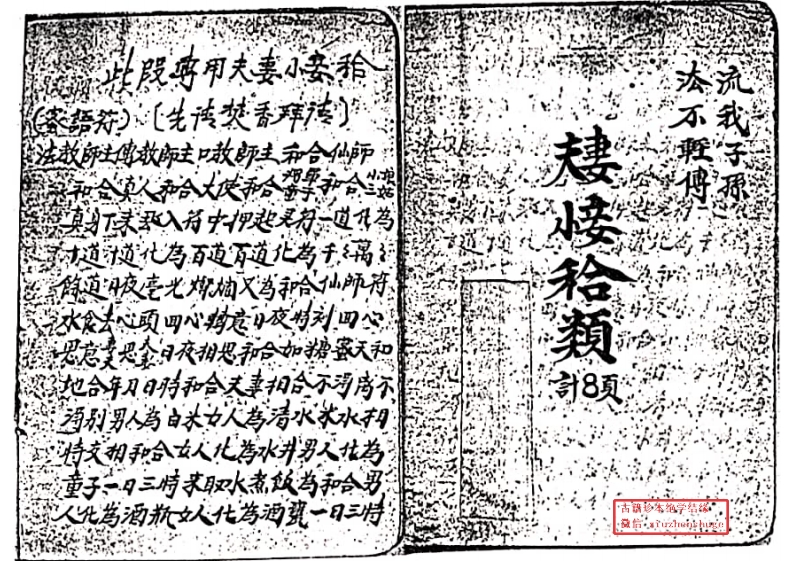 流我子孫
法不輕傳
類
計8頁
此段專用夫妻小妾秴
(蜜語符) [先请焚香拜请]
法教師主傳教師主口教師主和合仙師
和合真人和合大使和合童子和合
真身下来入符中押起灵符一道化為
十道十道化為百道百道化為千々萬々
餘道日夜毫光燦爛又為和合仙師符
水食去心頭四心轉意日夜時刻四心
思意思日夜相思和合如糖蜜天和
地合年月日時和合夫妻相合不淂离不
淂別男人為白米女人為清水米水相
特交相和合女人化為水井男人化為
童子一日三時来取水煮飯為和合男
人化為酒瓶女人化為酒甕一日三時
古籍珍本绝学结缘
微信: xiuzhenshuge